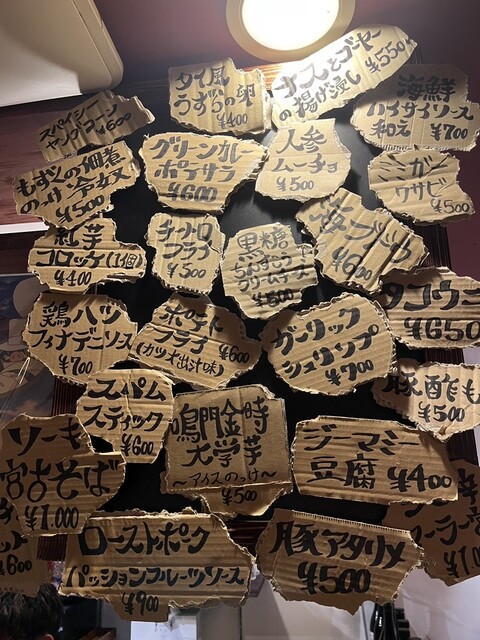 タイ風
うずらの卵
¥400
ナスとゴーヤー
の揚げ浸し
¥550
海鮮
ハイサイソース
和え
¥700
スパイシー
ヤングコーン
¥600
もずくの佃煮
のっけ冷奴
¥500
グリーンカレー
ポテサラ
¥600
人参
ムーチョ
¥500
ミミガー
ワサビ
¥500
紅芋
コロッケ(1個)
¥400
チーロロ
フライ
¥500
黒糖
ちんすこう
クリームチーズ
¥600
海ブドウ
¥600
タコウニ
¥650
鶏ハツ
フィナデニソース
¥700
ポテト
フライ
(カツオ出汁味)
¥600
ガーリック
シュリンプ
¥700
豚酢も
¥500
スパム
スティック
¥600
鳴門金時
大学芋
〜アイスのっけ〜
¥500
ジーマミ
豆腐
¥400
ソーキ
宮古そば
¥1.000
ローストポーク
パッションフルーツソース
¥900
豚アタリメ
¥500